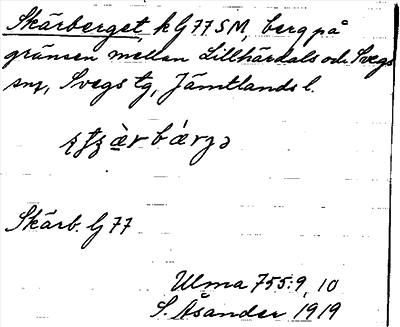 Skärberget k G 77 SM, berg på
gränsen mellan Lillhärdals och Svegs
snr, Svegs tg, Jämtlands l.
Skärb. G 77
Ulma 755:9, 10
S. Åsander 1919